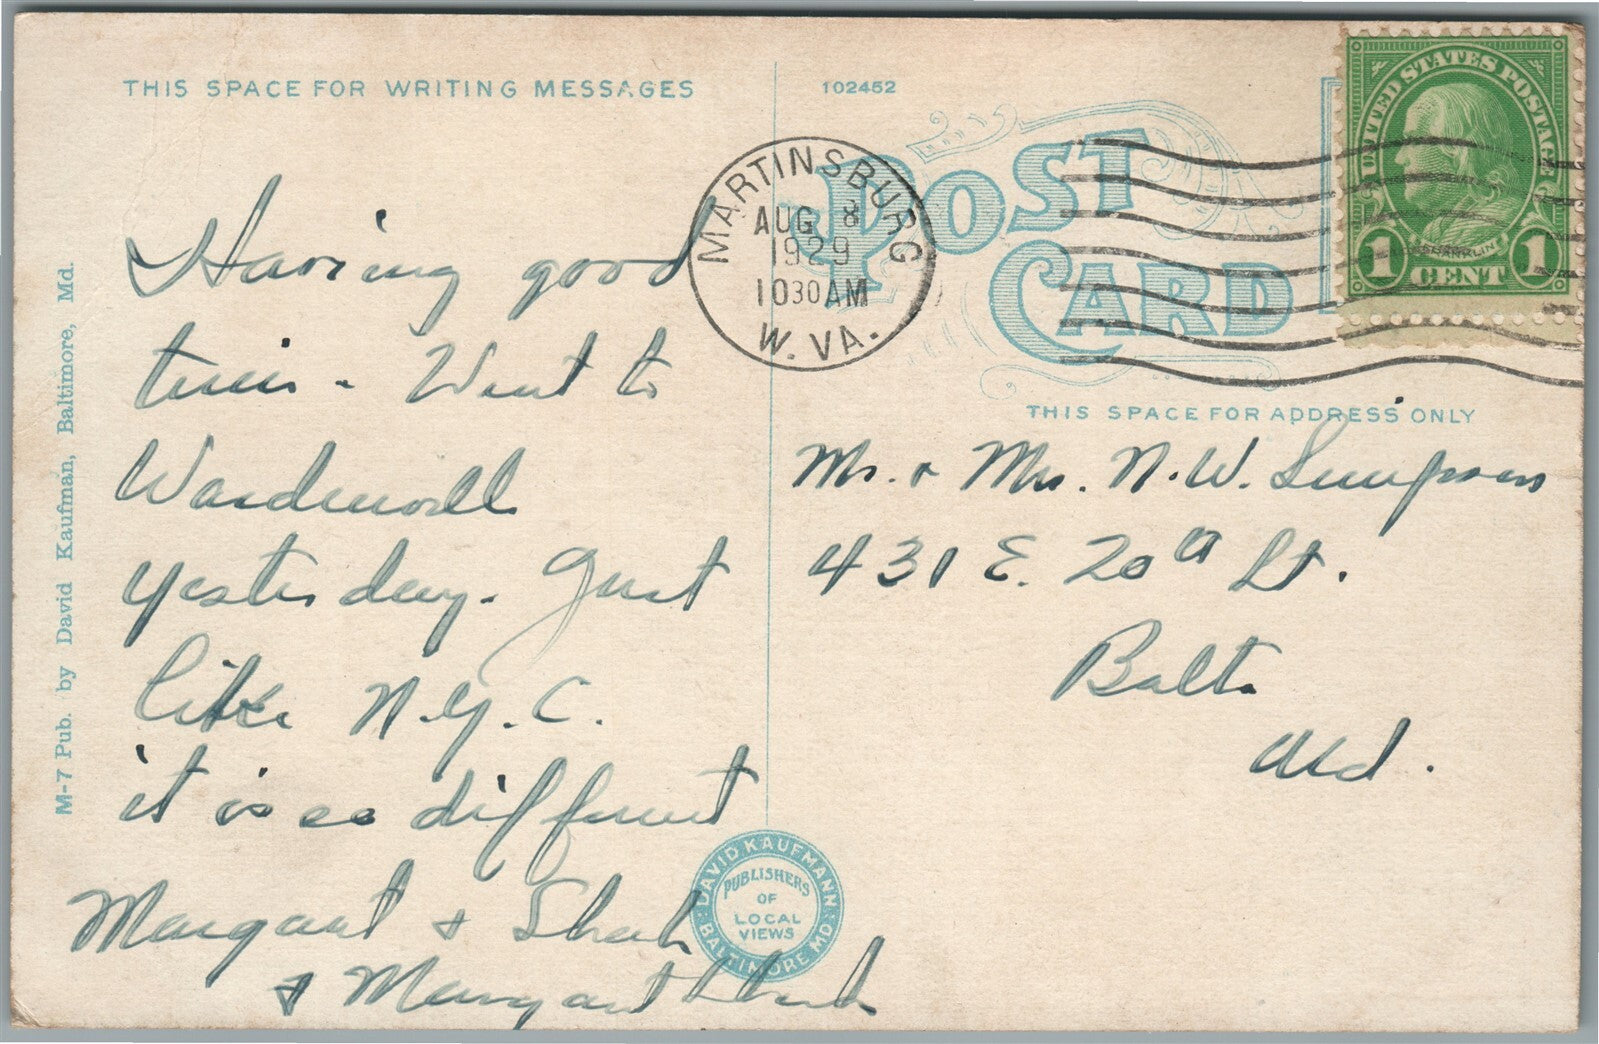 THIS SPACE FOR WRITING MESSAGES
Having good
time - Went to
yesterday. Just
like N.Y.C.
it is so different
Margaret &
& Margaret
M-7 Pub. by David Kaufman, Baltimore, Md.
102452
POST
CARD
MARTINSBURG
AUG 8
1929
1030AM
W. VA.
UNITED STATES POSTAGE
FRANKLIN
1 CENT 1
THIS SPACE FOR ADDRESS ONLY
Mr. & Mrs. N. W. Simpson
431 E. 20th St.
Balt.
Md.
DAVID KAUFMANN
PUBLISHERS
OF
LOCAL
VIEWS
BALTIMORE MD.